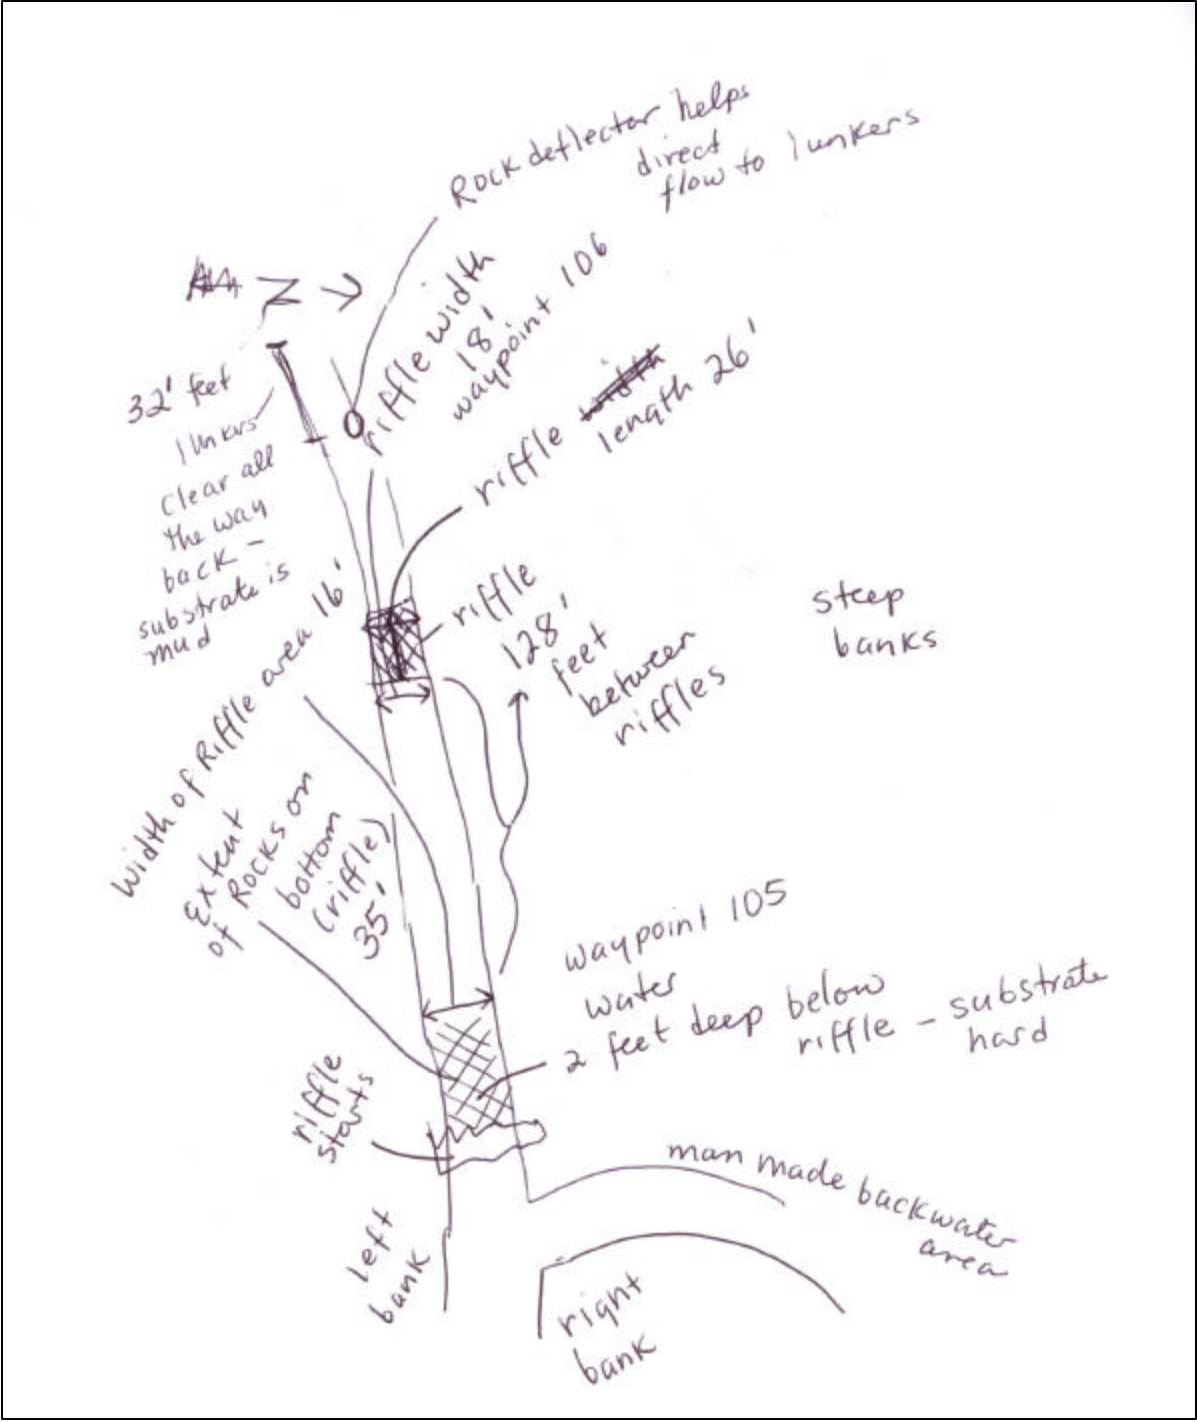 Rock deflector helps
direct
flow to lunkers
N
riffle width
18'
waypoint 106
32' feet
lunkers
Clear all
the way
back –
substrate is
mud
riffle width
length 26'
riffle
128'
feet
between
riffles
steep
banks
Width of Riffle area 16'
Extent
of Rocks on
bottom
(riffle)
35'
waypoint 105
water
2 feet deep below
riffle – substrate
hard
riffle
starts
man made backwater
area
left
bank
right
bank